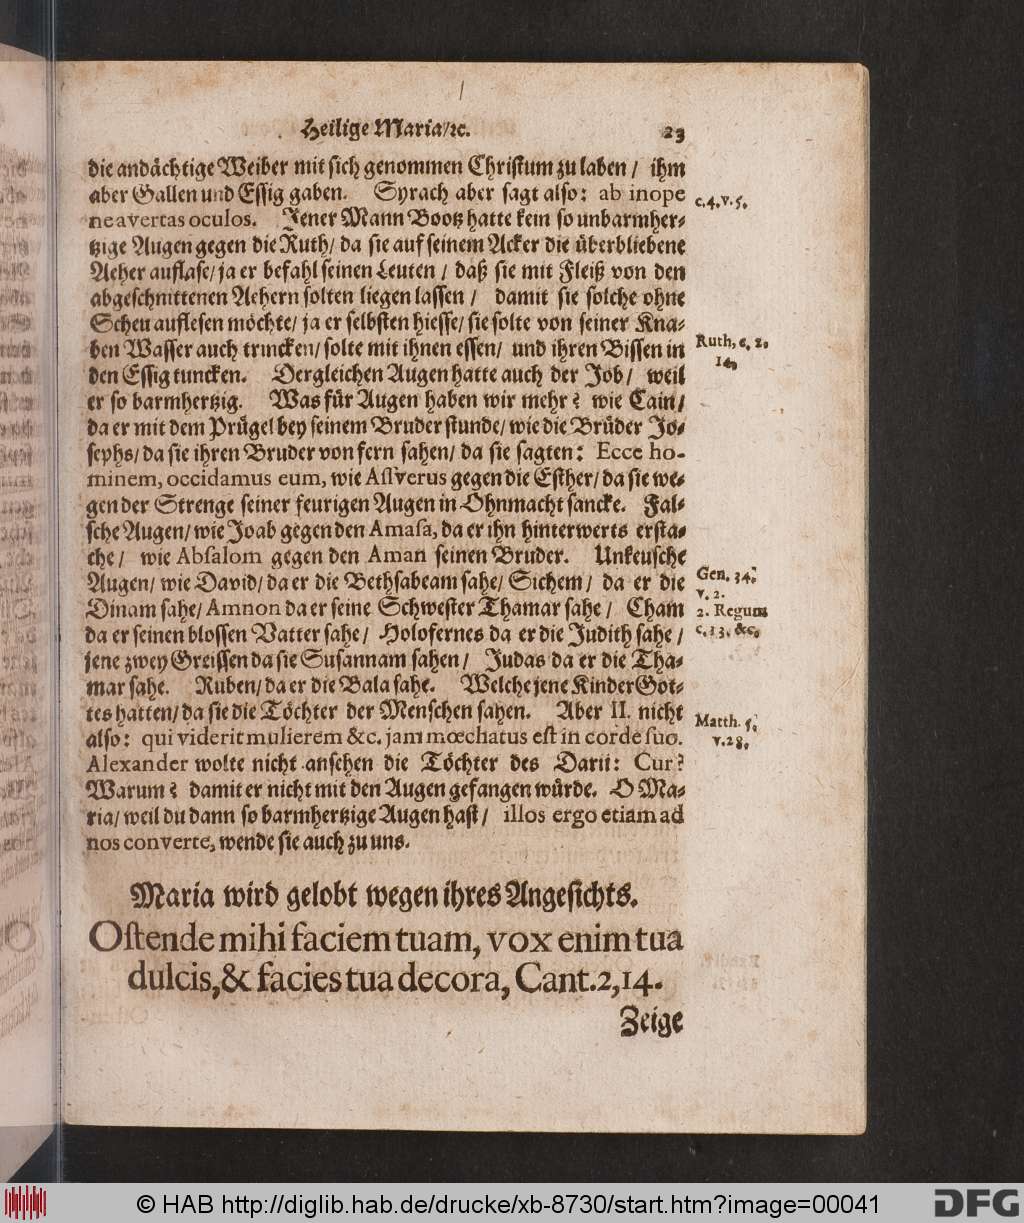 Heilige Maria/ꝛc. 23
die andächtige Weiber mit sich genommen Christum zu laben / ihm
aber Gallen und Essig gaben. Syrach aber sagt also: ab inope
ne avertas oculos. Jener Mann Bootz hatte kein so unbarmher-
tzige Augen gegen die Ruth/ da sie auf seinem Acker die überbliebene
Aeher auflase/ ja er befahl seinen Leuten / daß sie mit Fleiß von den
abgeschnittenen Aehern solten liegen lassen / damit sie solche ohne
Scheu auflesen möchte/ ja er selbsten hiesse/ sie solte von seiner Kna-
ben Wasser auch trincken/ solte mit ihnen essen/ und ihren Bissen in
den Essig tuncken. Dergleichen Augen hatte auch der Job/ weil
er so barmhertzig. Was für Augen haben wir mehr? wie Cain/
da er mit dem Prügel bey seinem Bruder stunde/ wie die Brüder Jo-
sephs/ da sie ihren Bruder von fern sahen/ da sie sagten: Ecce ho-
minem, occidamus eum, wie Assverus gegen die Esther/ da sie we-
gen der Strenge seiner feurigen Augen in Ohnmacht sancke. Fal-
sche Augen/ wie Joab gegen den Amasa, da er ihn hinterwerts ersta-
che/ wie Absalom gegen den Aman seinen Bruder. Unkeusche
Augen/ wie David/ da er die Bethsabeam sahe/ Sichem/ da er die
Dinam sahe/ Amnon da er seine Schwester Thamar sahe/ Cham
da er seinen blossen Vatter sahe/ Holofernes da er die Judith sahe /
jene zwey Greissen da sie Susannam sahen/ Judas da er die Tha-
mar sahe. Ruben/ da er die Bala sahe. Welche jene Kinder Got-
tes hatten/ da sie die Töchter der Menschen sahen. Aber II. nicht
also: qui viderit mulierem &c. jam mœchatus est in corde suo.
Alexander wolte nicht ansehen die Töchter des Darii: Cur?
Warum? damit er nicht mit den Augen gefangen würde. O Ma-
ria/ weil du dann so barmhertzige Augen hast/ illos ergo etiam ad
nos converte, wende sie auch zu uns.
c. 4. v. 5.
Ruth, c. 2.
14.
Gen. 34.
v. 2.
2. Regum
c. 13. &c.
Matth. 5.
v. 28.
Maria wird gelobt wegen ihres Angesichts.
Ostende mihi faciem tuam, vox enim tua
dulcis, & facies tua decora, Cant. 2, 14.
Zeige
© HAB http://diglib.hab.de/drucke/xb-8730/start.htm?image=00041
DFG